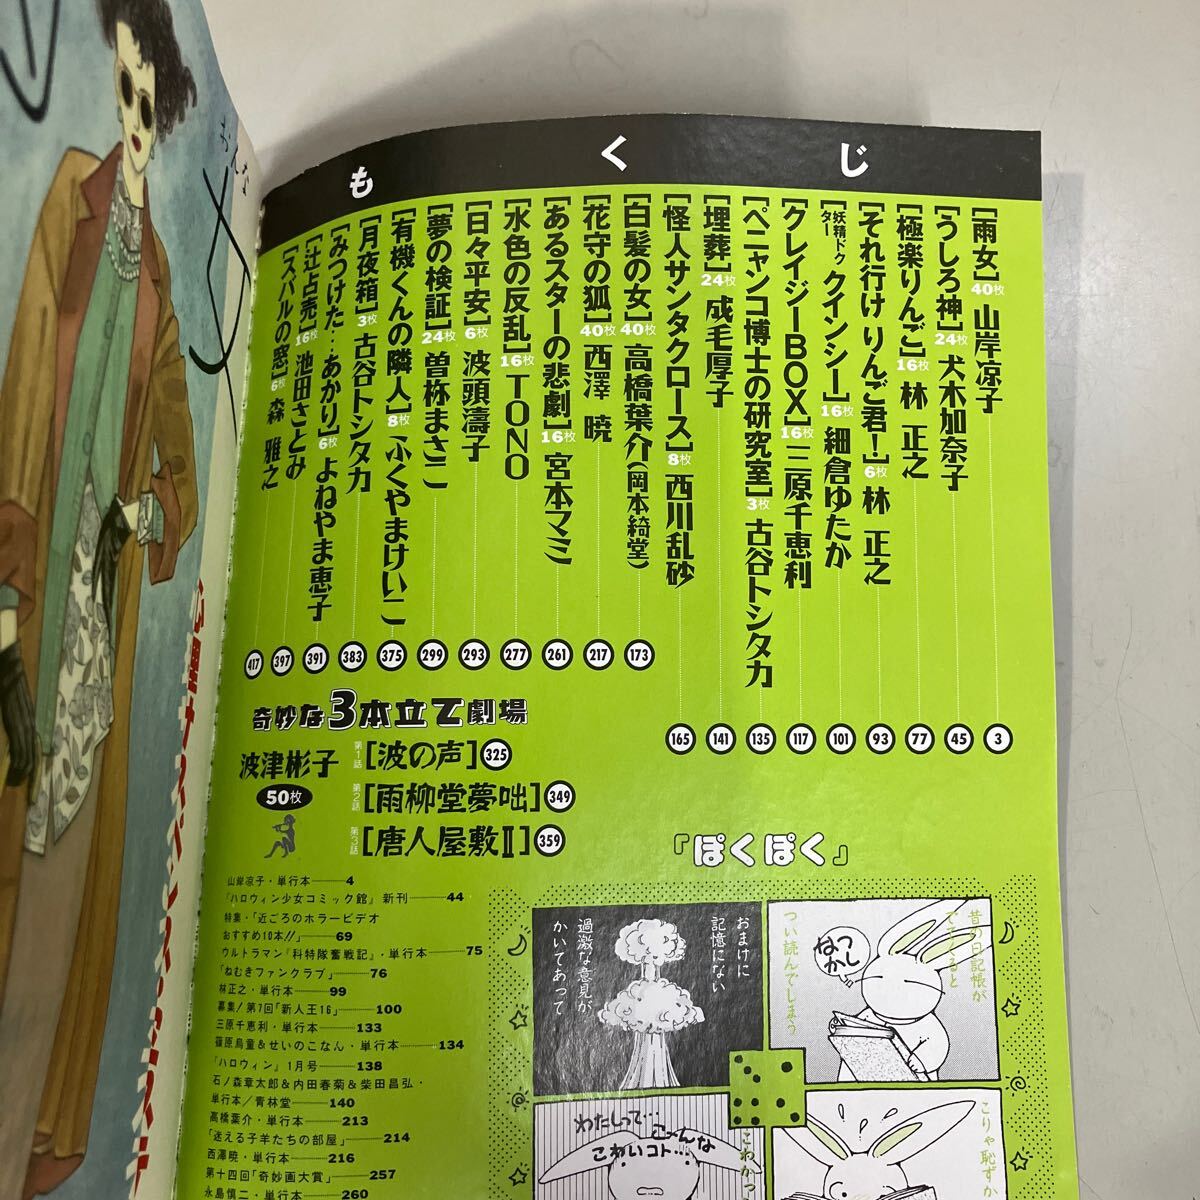 もくじ
[雨女]40枚 山岸凉子 3
[うしろ神]24枚 犬木加奈子 45
[極楽りんご]16枚 林 正之 77
[それ行け りんご君!]6枚 林 正之 93
[妖精ドクター クインシー]16枚 細倉ゆたか 101
[クレイジーBOX]16枚 三原千恵利 117
[ペニャンコ博士の研究室]3枚 古谷トシタカ 135
[埋葬]24枚 成毛厚子 141
[怪人サンタクロース]8枚 西川乱砂 165
[白髪の女]40枚 高橋葉介(岡本綺堂) 173
[花守の狐]40枚 西澤 暁 217
[あるスターの悲劇]16枚 宮本マミ 261
[水色の反乱]16枚 TONO 277
[日々平安]6枚 波頭濤子 293
[夢の検証]24枚 曽祢まさこ 299
[有機くんの隣人]8枚 ふくやまけいこ 375
[月夜箱]3枚 古谷トシタカ 383
[みつけた‥あかり]6枚 よねやま恵子 391
[辻占売]16枚 池田さとみ 397
[スバルの窓]6枚 森 雅之 417
奇妙な3本立て劇場
波津彬子
50枚
第1話[波の声]325
第2話[雨柳堂夢咄]349
第3話[唐人屋敷II]359
山岸凉子・単行本──4
『ハロウィン少女コミック館』新刊──44
特集・「近ごろのホラービデオ
おすすめ10本!!」──69
ウルトラマン『科特隊奮戦記』・単行本──75
「ねむきファンクラブ」──76
林正之・単行本──99
募集!第7回「新人王16」──100
三原千恵利・単行本──133
篠原烏童&せいのこなん・単行本──134
『ハロウィン』1月号──138
石ノ森章太郎&内田春菊&柴田昌弘・
単行本/青林堂──140
高橋葉介・単行本──213
「迷える子羊たちの部屋」──214
西澤暁・単行本──216
第十四回「奇妙画大賞」──257
永島慎二・単行本──260
『ぽくぽく』
昔の日記帳が
でてくると
つい読んでしまう
なつかし
おまけに
記憶にない
過激な意見が
かいてあって
こりゃ恥ずか
わたしって…
こ〜んな
こわいコト…
こわかっ
おんな
女